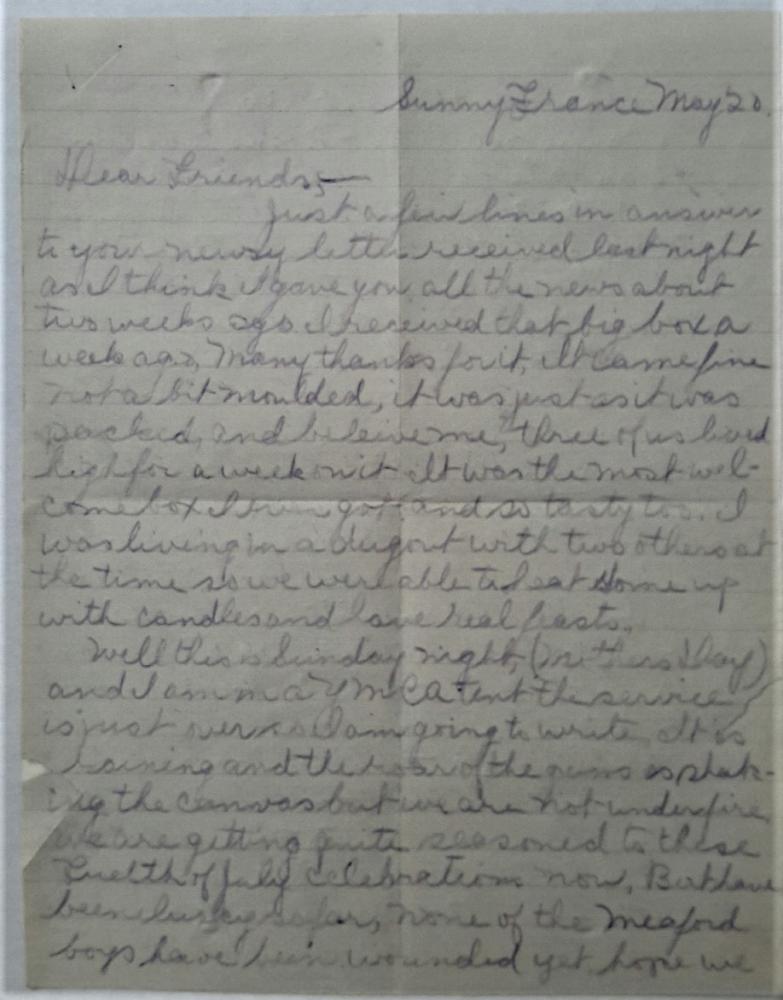 Sunny France May 20.
Dear Friends,—
Just a few lines in answer
to your newsy letter received last night
as I think I gave you all the news about
two weeks ago. I received that big box a
week ago, Many thanks for it, it came fine
not a bit moulded, it was just as it was
packed, and beleive me, three of us lived
high for a week on it. It was the most wel-
come box I ever got and so tasty too. I
was living in a dugout with two others at
the time so we were able to heat some up
with candles and have real feasts.
Well this is Sunday night, (Mothers Day)
and I am in a YMCA tent the service
is just over so I am going to write. It is
raining and the roar of the guns is shak-
ing the canvas but we are not under fire
we are getting quite seasoned to these
Twelth of July celebrations now, But have
been lucky so far, none of the Meaford
boys have been wounded yet, hope we